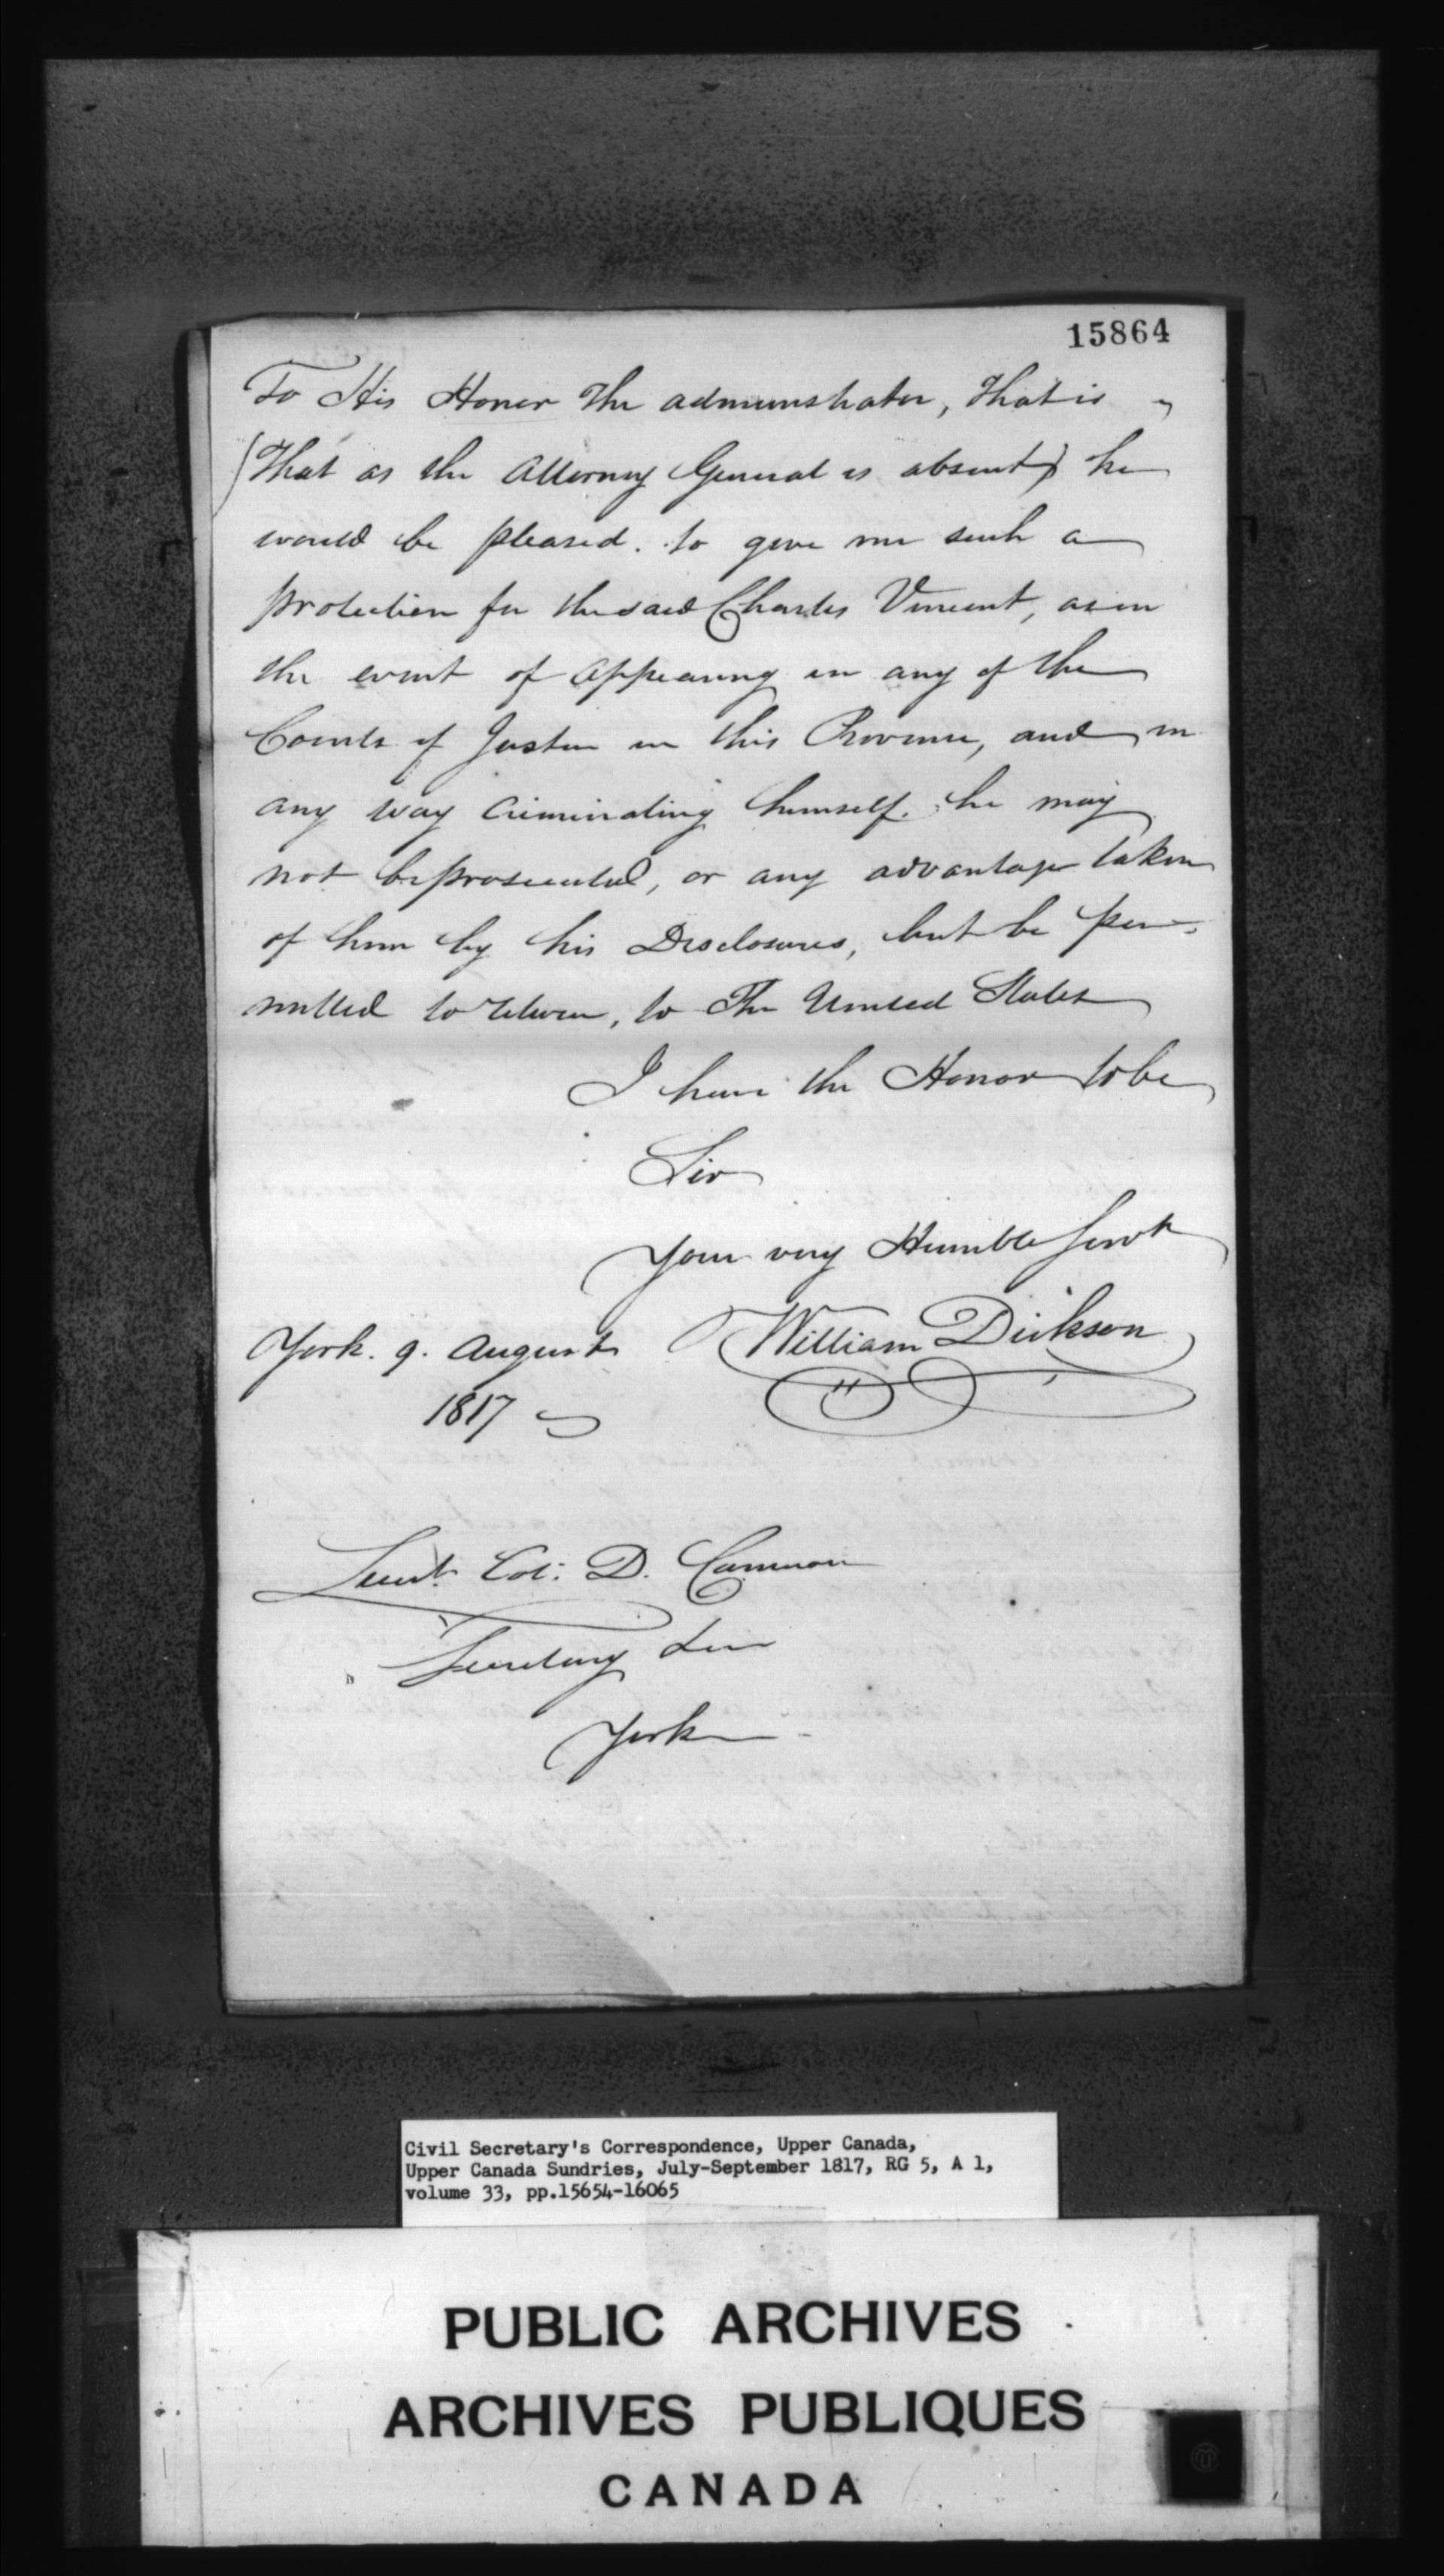 15864
To His Honor The administrator, that is
(That as the Attorney General is absent) he
would be pleased. to give me such a
protection for the said Charles Vincent, as in
the event of appearing in any of the
Courts of Justice in this Province, and in
any way criminating himself. he may
not be prosecuted, or any advantage taken
of him by his Disclosures, but be per-
mitted to return, to The United States
I have the Honor to be
Sir
Your very Humble Servt
York. 9. August William Dickson
1817
Lieut. Col: D. Cameron
Secretary
York
Civil Secretary's Correspondence, Upper Canada,
Upper Canada Sundries, July-September 1817, RG 5, A 1,
volume 33, pp.15654-16065
PUBLIC ARCHIVES
ARCHIVES PUBLIQUES
CANADA